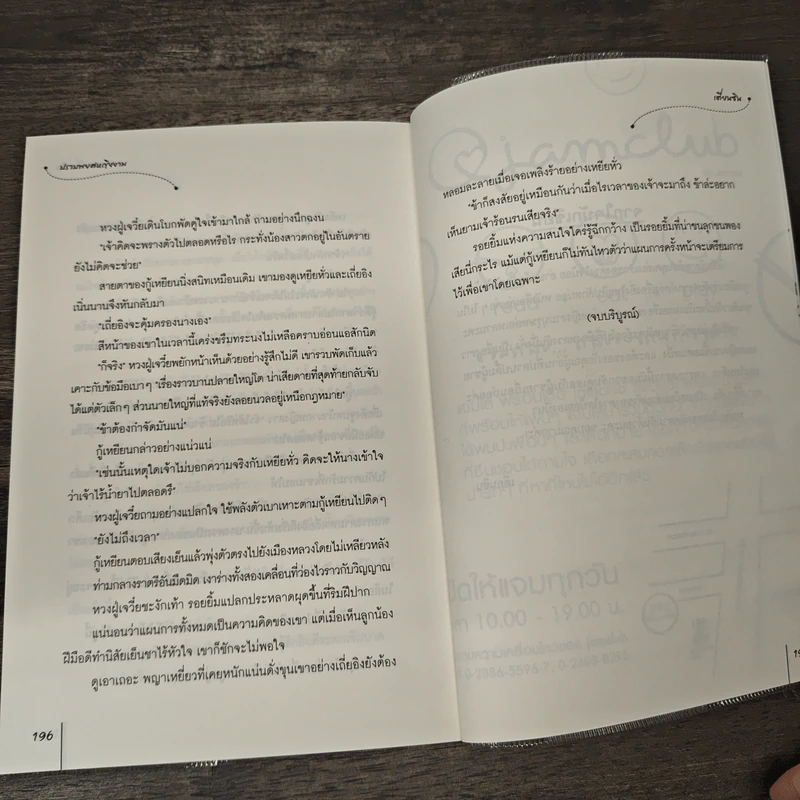 ปราบพยศหญิงงาม
หวงฝู่เจวี๋ยเดินโบกพัดคู่ใจเข้ามาใกล้ ถามอย่างนึกฉงน
"เจ้าคิดจะพรางตัวไปตลอดหรือไร กระทั่งน้องสาวตกอยู่ในอันตราย
ยังไม่คิดจะช่วย"
สายตาของกู้เหยียนนิ่งสนิทเหมือนเดิม เขามองดูเหยียหั่วและเถี่ยอิง
เนิ่นนานจึงหันกลับมา
"เถี่ยอิงจะคุ้มครองนางเอง"
สีหน้าของเขาในเวลานี้เคร่งขรึมทระนงไม่เหลือคราบอ่อนแอสักนิด
"ก็จริง" หวงฝู่เจวี๋ยพยักหน้าเห็นด้วยอย่างรู้สึกไม่ดี เขารวบพัดเก็บแล้ว
เคาะกับข้อมือเบาๆ "เรื่องราวบานปลายใหญ่โต น่าเสียดายที่สุดท้ายกลับจับ
ได้แต่ตัวเล็กๆ ส่วนนายใหญ่ที่แท้จริงยังลอยนวลอยู่เหนือกฎหมาย"
"ข้าต้องกำจัดมันแน่"
กู้เหยียนกล่าวอย่างแน่วแน่
"เช่นนั้นเหตุใดเจ้าไม่บอกความจริงกับเหยียหั่ว คิดจะให้นางเข้าใจ
ว่าเจ้าไร้น้ำยาไปตลอดรึ"
หวงฝู่เจวี๋ยถามอย่างแปลกใจ ใช้พลังตัวเบาเหาะตามกู้เหยียนไปติดๆ
"ยังไม่ถึงเวลา"
กู้เหยียนตอบเสียงเย็นแล้วพุ่งตัวตรงไปยังเมืองหลวงโดยไม่เหลียวหลัง
ท่ามกลางราตรีอันมืดมิด เงาร่างทั้งสองเคลื่อนที่ว่องไวราวกับวิญญาณ
หวงฝู่เจวี๋ยชะงักเท้า รอยยิ้มแปลกประหลาดผุดขึ้นที่ริมฝีปาก
แน่นอนว่าแผนการทั้งหมดเป็นความคิดของเขา แต่เมื่อเห็นลูกน้อง
ฝีมือดีทำนิสัยเย็นชาไร้หัวใจ เขาก็ชักจะไม่พอใจ
ดูเอาเถอะ พญาเหยี่ยวที่เคยหนักแน่นดั่งขุนเขาอย่างเถี่ยอิงยังต้อง
196
เตี่ยนซิน
หลอมละลายเมื่อเจอเพลิงร้ายอย่างเหยียหั่ว
"ข้าก็สงสัยอยู่เหมือนกันว่าเมื่อไรเวลาของเจ้าจะมาถึง ข้าล่ะอยาก
เห็นยามเจ้าร้อนรนเสียจริง"
รอยยิ้มแห่งความสนใจใคร่รู้ฉีกกว้าง เป็นรอยยิ้มที่น่าขนลุกขนพอง
เสียนี่กระไร แม้แต่กู้เหยียนก็ไม่ทันไหวตัวว่าแผนการครั้งหน้าจะเตรียมการ
ไว้เพื่อเขาโดยเฉพาะ
(จบบริบูรณ์)